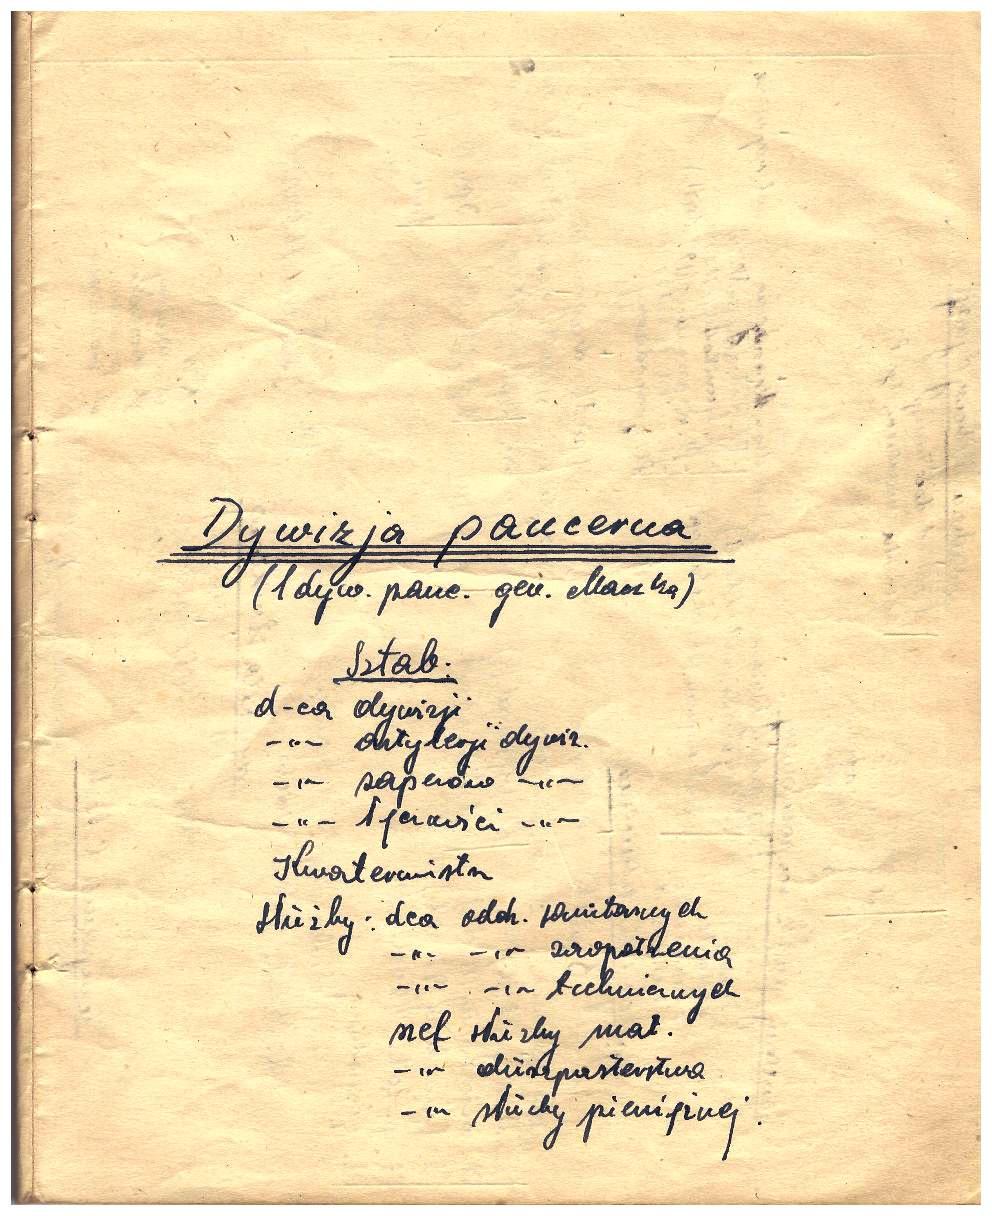 Dywizja pancerna
(1 dyw. panc. gen. Maczka)
Sztab:
d-ca dywizji
-"- artylerji dywiz.
-"- saperów -"-
-"- łączności -"-
Kwatermistrz
Służby: dca oddz. sanitarnych
-"- -"- zaopatrzenia
-"- -"- technicznych
szef służby mat.
-"- duszpasterstwa
-"- służby pieniężnej.